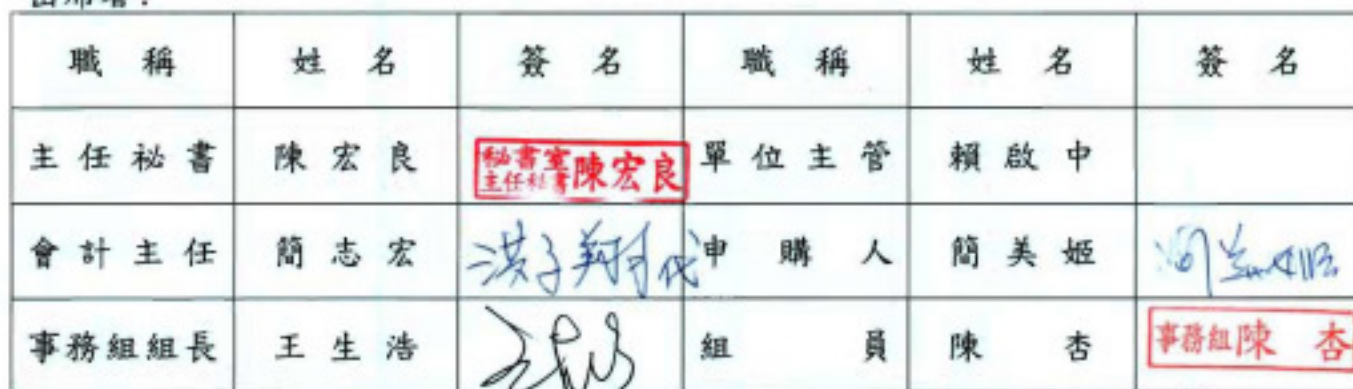 出席者：
職稱 姓名 簽名 職稱 姓名 簽名
主任秘書 陳宏良 秘書室主任秘書陳宏良 單位主管 賴啟中
會計主任 簡志宏 洪子翔代 申購人 簡美姬 簡美姬
事務組組長 王生浩 組員 陳杏 事務組陳杏